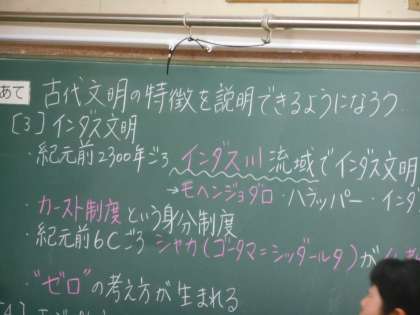 あて 古代文明の特徴を説明できるようになろう
[3] インダス文明
・紀元前2300年ごろ インダス川 流域でインダス文明
→モヘンジョダロ・ハラッパー・インダ
・カースト制度という身分制度
・紀元前6Cごろ シャカ(ゴータマ=シッダールタ)が
・"ゼロ"の考え方が生まれる